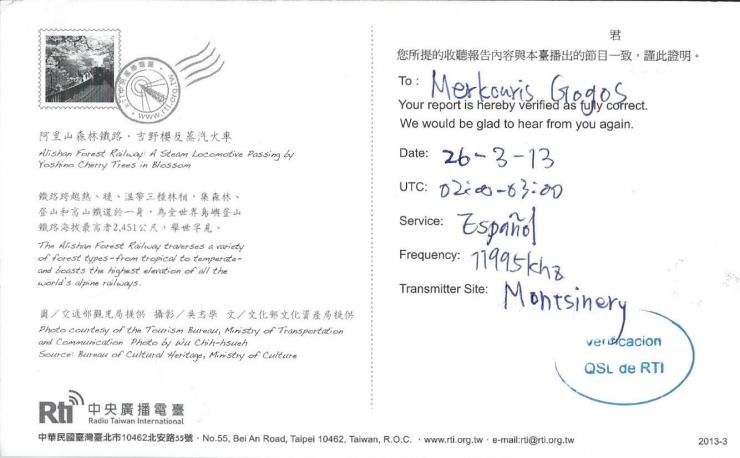 中央廣播電臺
www.rti.org.tw
阿里山森林鐵路‧吉野櫻及蒸汽火車
Alishan Forest Railway: A Steam Locomotive Passing by
Yoshino Cherry Trees in Blossom
鐵路跨越熱、暖、溫帶三種林相，集森林、
登山和高山鐵道於一身，為全世界島嶼登山
鐵路海拔最高者2,451公尺，舉世罕見。
The Alishan Forest Railway traverses a variety
of forest types-from tropical to temperate-
and boasts the highest elevation of all the
world's alpine railways.
圖／交通部觀光局提供 攝影／吳志學 文／文化部文化資產局提供
Photo courtesy of the Tourism Bureau, Ministry of Transportation
and Communication Photo by Wu Chih-hsueh
Source: Bureau of Cultural Heritage, Ministry of Culture
Rti 中央廣播電臺
Radio Taiwan International
中華民國臺灣臺北市10462北安路55號‧No.55, Bei An Road, Taipei 10462, Taiwan, R.O.C.‧www.rti.org.tw‧e-mail:rti@rti.org.tw
君
您所提的收聽報告內容與本臺播出的節目一致，謹此證明。
To: Merkouris Gogos
Your report is hereby verified as fully correct.
We would be glad to hear from you again.
Date: 26-3-13
UTC: 02:00-03:00
Service: Español
Frequency: 11995khz
Transmitter Site: Montsinery
verificacion
QSL de RTI
2013-3